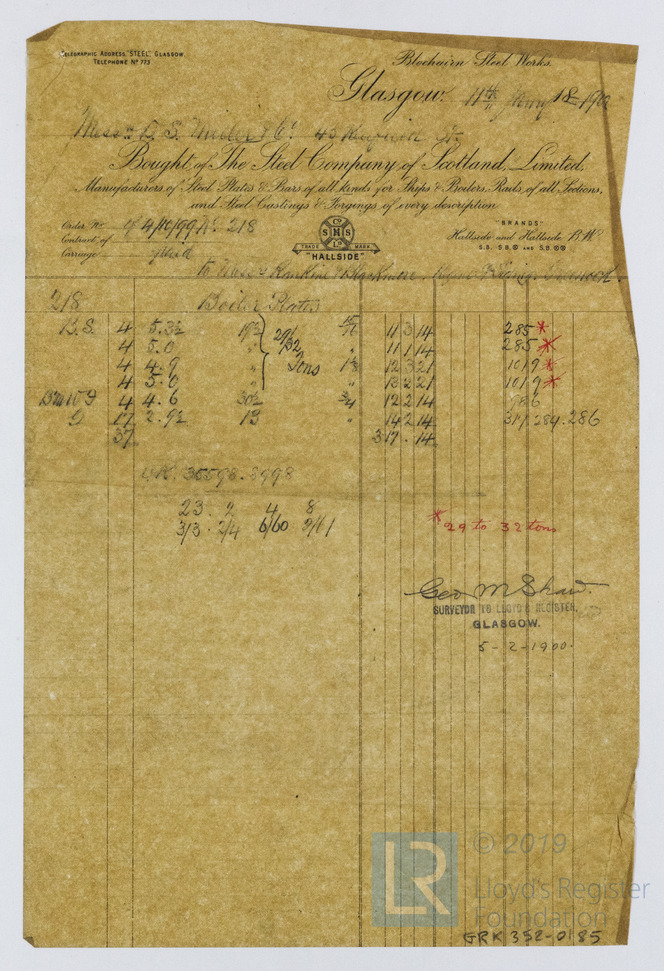 TELEGRAPHIC ADDRESS, "STEEL", GLASGOW.
TELEPHONE Nº 773.
Blochairn Steel Works.
Glasgow. 11th 18
Messrs 43
Bought of The Steel Company of Scotland, Limited,
Manufacturers of Steel Plates & Bars of all kinds for Ships & Boilers, Rails of all Sections,
and Steel Castings & Forgings of every description
Order No. of 4/10/99 No. 218
Contract of
Carriage paid
TRADE MARK
"HALLSIDE"
"BRANDS"
Hallside and Hallside B.W.
to Messrs Rankin & Blackmore, Greenock.
218 Boiler Plates
B.S. 4 5.3½ 285 *
4 5.0 " 11 1 14 285 *
4 4.9 " 12 3 21 1019 *
4 5.0 " 13 2 21 1019 *
4 4.6 30½ ¾ 12 2 14 986
17 2.9½ 13 " 14 2 14 317.284.286
37 317.14
29/32 Tons
35598.8998
23. 2 4 8
3/3. 2/4 6/60 9/61
* 29 to 32 tons
Geo M Shaw.
SURVEYOR TO LLOYD'S REGISTER,
GLASGOW.
5-2-1900.
LR
© 2019
Lloyd's Register
Foundation
GRK 352-0185